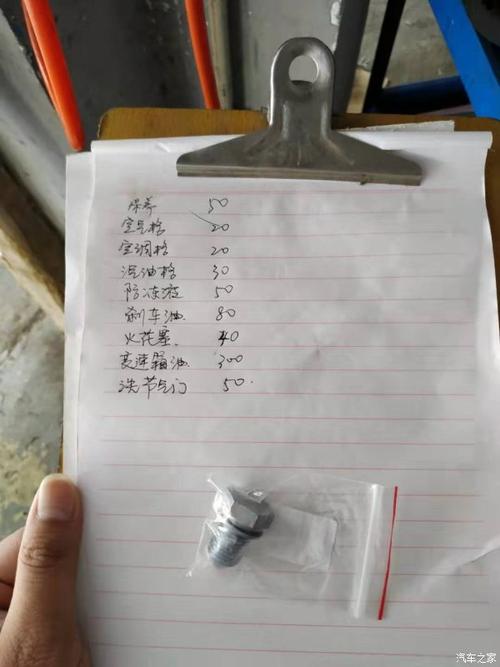 保养 50
空气格 20
空调格 20
汽油格 30
防冻液 50
刹车油 80
火花塞. 40
变速箱油 300
洗节气门 50.
汽车之家